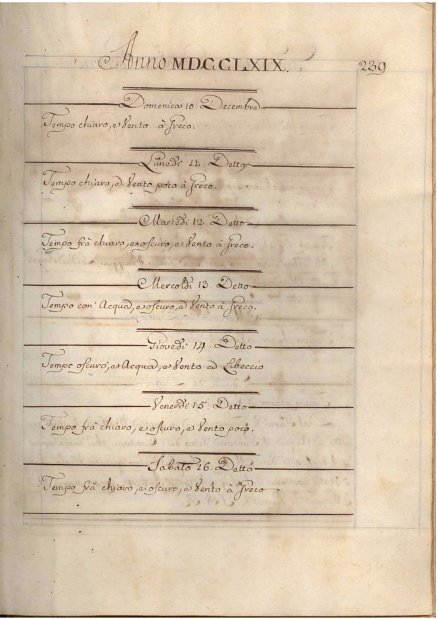 Anno MDCCLXIX.
239
Domenica 10 Decembre
Tempo chiaro, e Vento à Greco.
Lunedì 11 Detto
Tempo chiaro, e Vento poco à Greco.
Martedì 12 Detto
Tempo frà chiaro, e oscuro, e Vento à Greco.
Mercoldì 13. Detto
Tempo con' Acqua, e oscuro, e Vento à Greco.
Giovedì 14. Detto
Tempo oscuro, e Acqua, e Vento a Libeccio
Venerdì 15. Detto
Tempo frà chiaro, e oscuro, e Vento poco.
Sabato 16. Detto
Tempo frà chiaro, e oscuro, e Vento à Greco